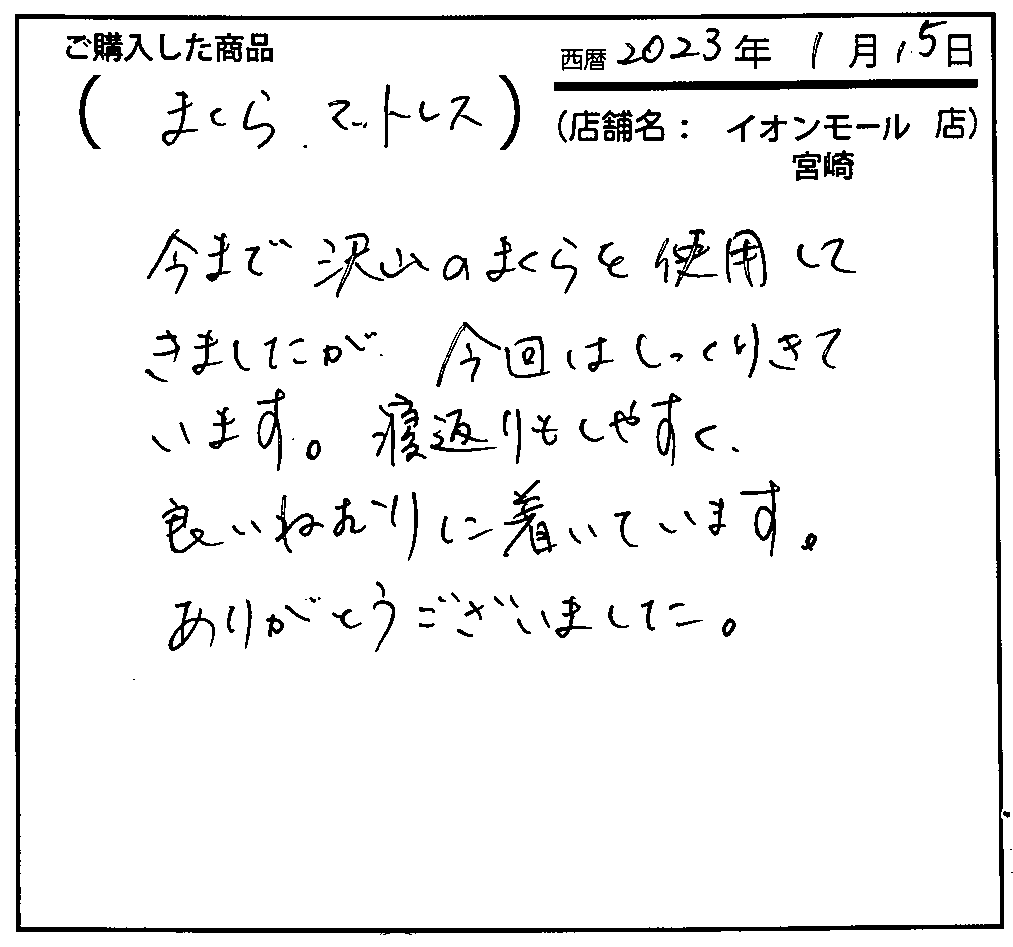 ご購入した商品
西暦 2023年 1月15日
( まくら、マットレス )
(店舗名： イオンモール 店)
宮崎
今まで沢山のまくらを使用して
きましたが、今回はしっくりきて
います。寝返りもしやすく、
良いねむりに着いています。
ありがとうございました。